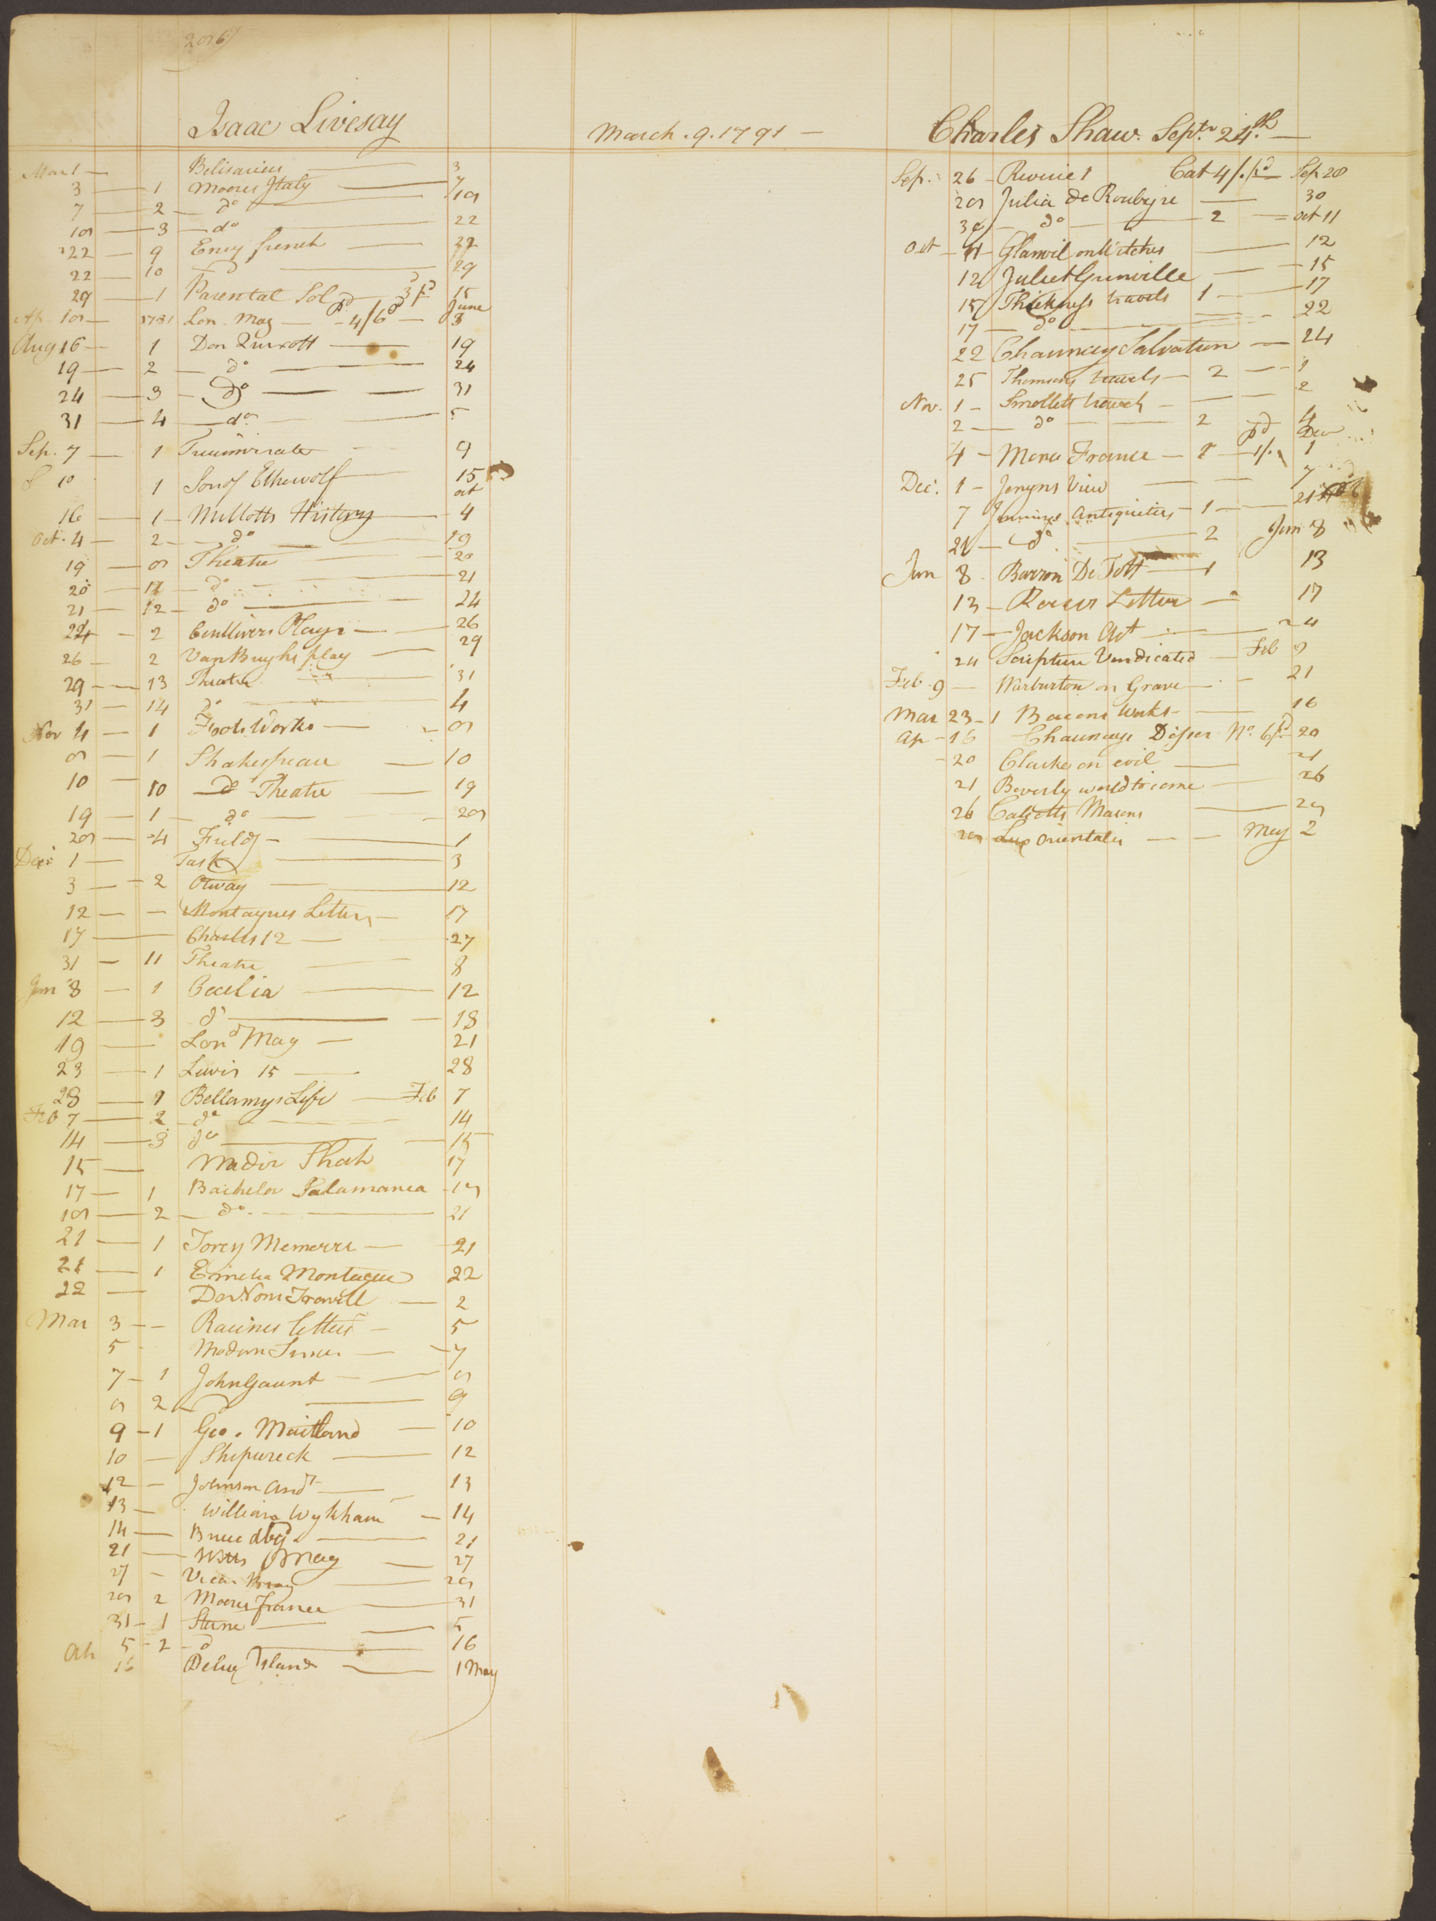 206
Isaac Livesay
Mar 1 — Belisarius — 3
3 — 1 Moores Italy — 7
7 — 2 — do — 18
18 — 3 — do — 22
22 — 9 Ency french — 22
22 — 10 do — 29
29 — 1 Parental Sol 3 pd 15
Ap. 18 — 1781 Lon. Mag — pd 4/6 — June 3
Aug 16 — 1 Don Quixott — 19
19 — 2 — do — 24
24 — 3 — do — 31
31 — 4 — do — 5
Sep. 7 — 1 Triumvirate 9
10 1 Son of Ethewolf 15 oct
16 — 1 — Millotts History — 4
Oct. 4 — 2 — do — 19
19 — 8 Theatre — 20
20 — 11 — do — 21
21 — 12 — do — 24
24 — 2 Centlivers Plays — 26
26 — 2 VanBrughs play — 29
29 — 13 Theatre 31
31 — 14 do — 4
Nov 4 — 1 Foots Works — 8
8 — 1 Shakespeare — 10
10 — 10 — do Theatre — 19
19 — 1 — do — 28
28 — 4 Field 1
Dec 1 — Task — 3
3 — 2 Otway — 12
12 — — Montagues Letters — 17
17 — Charles 12 — 27
31 — 11 Theatre — 8
Jan 8 — 1 Cecilia — 12
12 — 3 do — 18
19 — Lond Mag — 21
23 — 1 Lewis 15 — 28
28 — 1 Bellamys Life — Feb 7
Feb 7 — 2 — do — 14
14 — 3 do — 15
15 — Nadir Shah 17
17 — 1 Bachelor Salamanca 18
18 — 2 — do — 21
21 — 1 Torcy Memoirs — 21
21 — 1 Emelia Montague 22
22 — 2
Mar 3 — — Racines letters — 5
5 Modern Times — 7
7 — 1 John Gaunt — 8
8 2 — do — 9
9 — 1 Geo. Maitland — 10
10 — Shipwreck — 12
12 — Johnson And — 13
13 — William Wykham — 14
14 — Bruce — 21
21 — Mag — 27
27 — — 28
28 2 Moores France — 31
31 — 1 Sterne — 5
5 — 2 — do — 16
16 Pelew Islands — 1 May
March . 9. 1791 —
Charles Shaw. Sepr. 24th —
Sep. 26 — Reveries Cat 4/. pd — Sep 28
28 Julia de Roubigne — 30
30 — do — 2 — oct 11
Oct — 11 — Glanvil on Witches — 12
12 Juliet Grenville — 15
15 Thicknyss travels 1 — 17
17 — do — 22
22 Chauncey Salvation — 24
25 Thomsons travels — 2 — 1
Nov. 1 — Smollett travels — 2
2 — do — 2 4
4 — Moore France — 2 — pd 1/. Dec 1
Dec. 1 — Jenyns View — 7
7 Antiquities — 1 — 21
21 — do — 2 Jan 8
Jan 8 Barron De Tott — 1 13
13 — Letters — 17
17 — Jackson Art — 24
24 Scripture Vindicated — Feb 9
Feb. 9 — Warburton on Grace — 21
Mar 23 — 1 Bacons Works — 16
Ap — 16 Chaunceys Disser No. 6 pd 20
20 Clarke on evil — 21
21 Beverly world to come 26
26 Calcotts Masons — 28
28 Lux orientalis — May 2